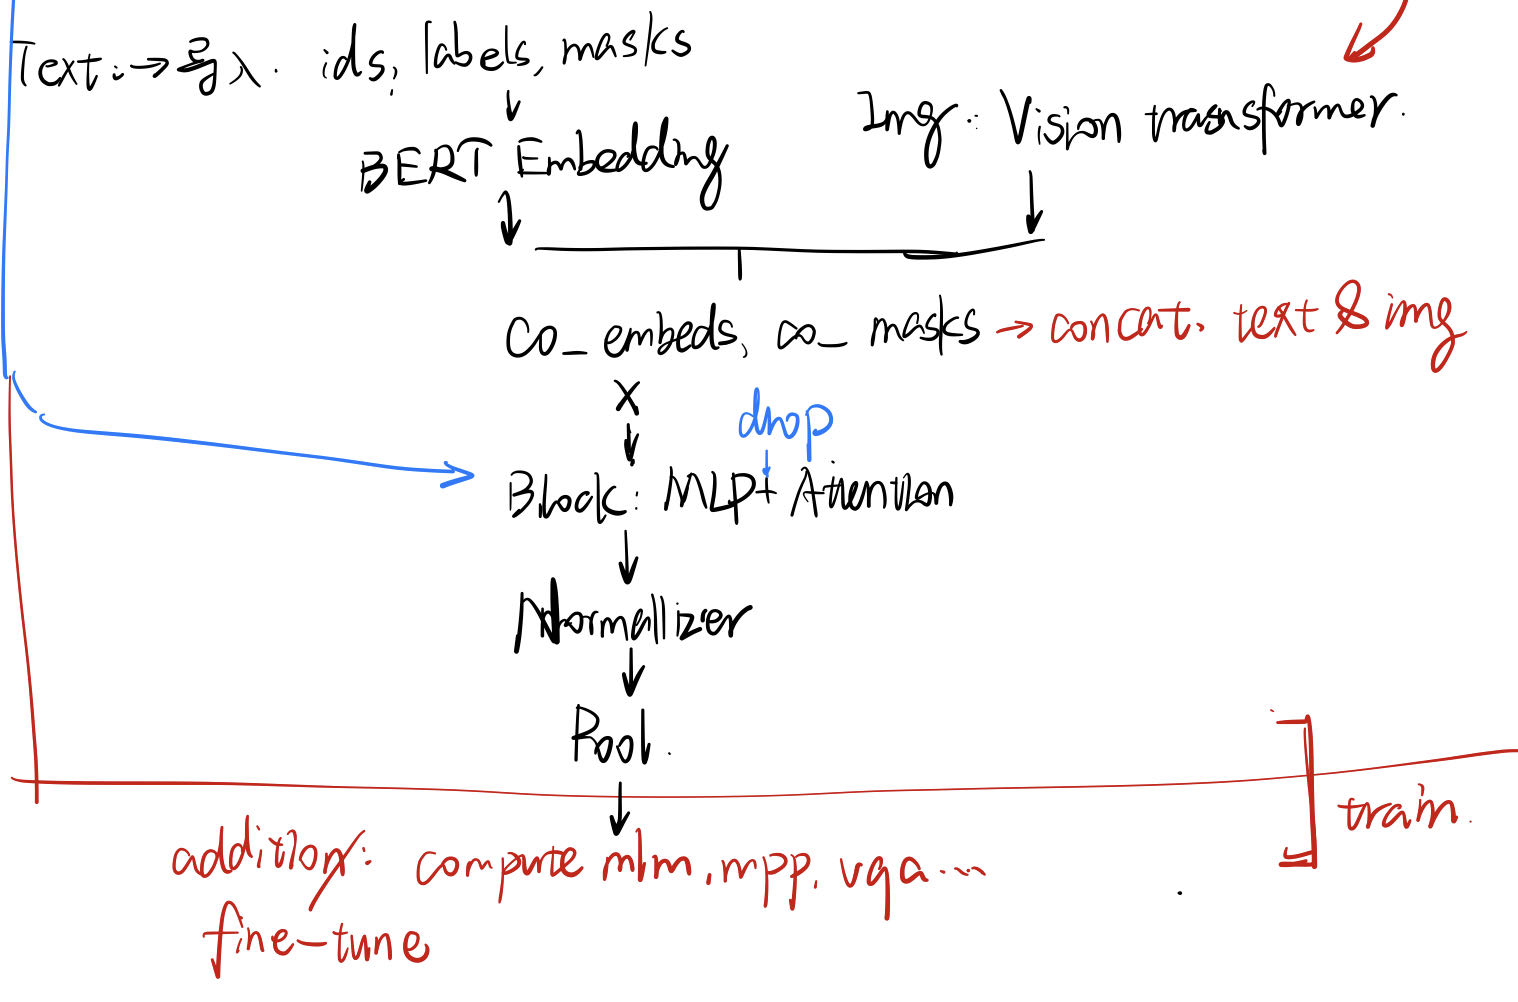 Text: → 导入. ids, labels, masks
Img: Vision transformer.
BERT Embedding
Co_embeds, co_masks → concat. text & img
X
drop
Block: MLP + Attention
Normallizer
Pool.
train.
addition: compute mlm, mpp, vqa...
fine-tune